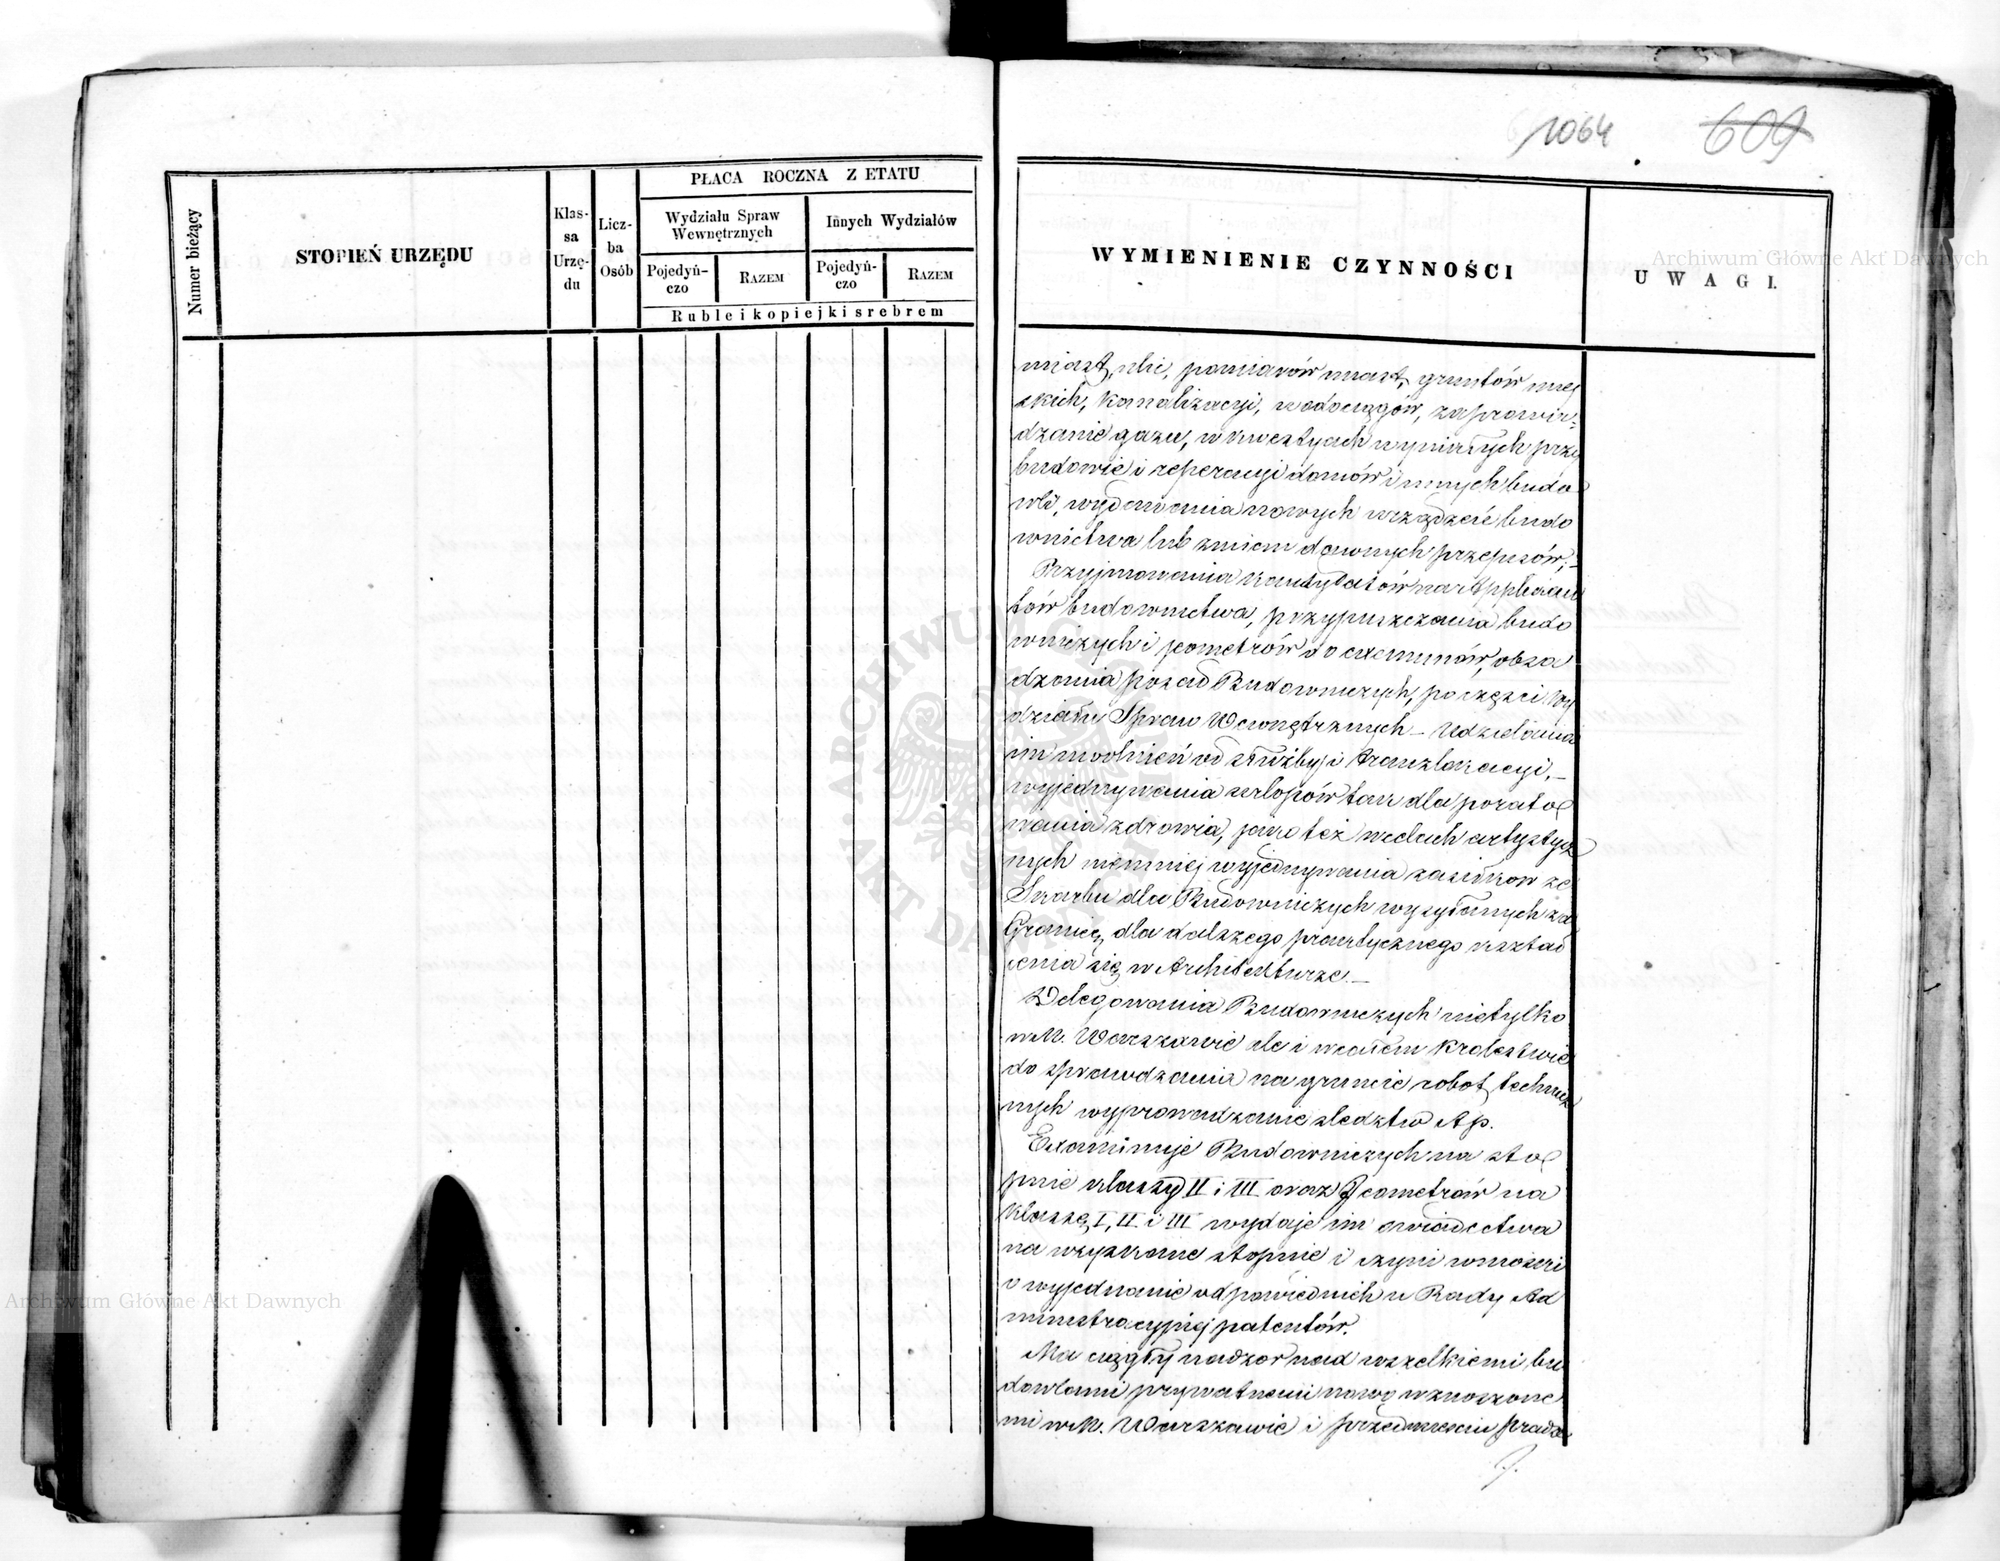 1064 609
Numer bieżący
STOPIEŃ URZĘDU
Klas-
sa
Urzę-
du
Licz-
ba
Osób
PŁACA ROCZNA Z ETATU
Wydziału Spraw
Wewnętrznych
Innych Wydziałów
Pojedyń-
czo
RAZEM
Pojedyń-
czo
RAZEM
Rubleikopiejkisrebrem
WYMIENIENIE CZYNNOŚCI
UWAGI.
miast, ulic, pomiarów miast, gruntów miej
skich, kanalizacyi, wodociągów, zaprowa-
dzanie gazu, w kwestyach wynikłych przy
budowie i reperacyi domów i innych budo
wli, wydawania nowych urządzeń budo
wnictwa lub zmian dawnych przepisów;–
Przyjmowania kandydatów na Applikan
tów budownictwa, przypuszczania budo
wniczych i jeometrów do exeminów, obsa
dzania posad Budowniczych, po części Wy
działu Spraw Wewnętrznych – Udzielania
im uwolnień od służby i translokacyi, –
wyjednywania urlopów tak dla porato
wania zdrowia, jako też w celach artystycz
nych niemniej wyjednywania zasiłków ze
Skarbu dla Budowniczych wysyłanych za
Granicę, dla dalszego praktycznego kształ
cenia się w Architekturze. –
Delegowania Budowniczych nietylko
w M. Warszawie ale i w całem Królestwie
do sprawdzania na gruncie robot technicz
nych wyprowadzanie śledztw itp.
Examinuje Budowniczych na sto
pnie klassy II i III oraz Jeometrów na
klassę I, II i III wydaje im świadectwa
na uzyskane stopnie i czyni wnioski
o wyjednanie odpowiednich u Rady Ad
ministracyjnej patentów.
Ma ciągły nadzór nad wszelkiemi bu
dowlami prywatnemi nowo wznoszone
mi w M. Warszawie i przedmieściu Pradze
Archiwum Główne Akt Dawnych
Archiwum Główne Akt Dawnych
ARCHIWUM GŁÓWNE AKT DAWNYCH